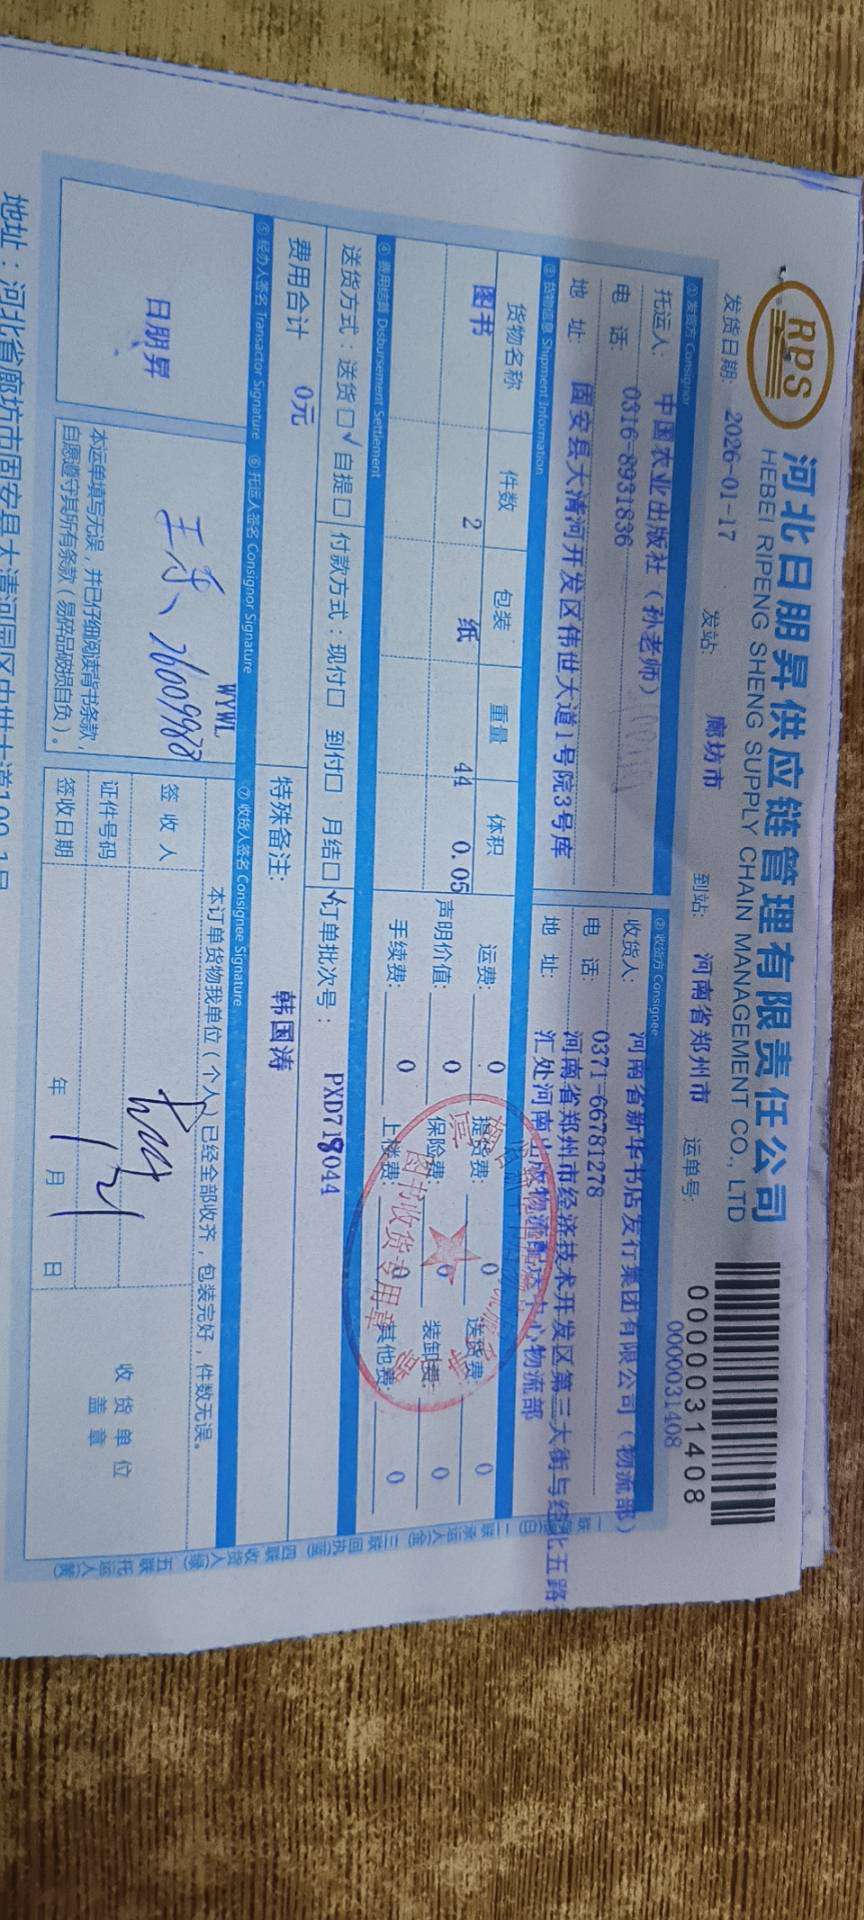 RPS
河北日朋昇供应链管理有限责任公司
HEBEI RIPENG SHENG SUPPLY CHAIN MANAGEMENT CO., LTD
0000031408
发货日期: 2026-01-17 发站: 廊坊市 到站: 河南省郑州市 运单号: 0000031408
① 发货方 Consignor ② 收货方 Consignee
托运人: 中国农业出版社(孙老师) 收货人: 河南省新华书店发行集团有限公司(物流部)
电 话: 0316-8931836 电 话: 0371-66781278
地 址: 固安县大清河开发区伟世大道1号院3号库 地 址: 河南省郑州市经济技术开发区第三大街与经北五路
汇处河南出版物流配送中心物流部
③ 货物信息 Shipment Information
货物名称 件数 包装 重量 体积 运费: 0 提货费: 0 送货费: 0
图书 2 纸 44 0.05 声明价值: 0 保险费: 0 装卸费: 0
手续费: 0 上楼费: 0 其他费: 0
图书收货专用章
④ 费用结算 Disbursement Settlement
送货方式:送货□√ 自提□ 付款方式:现付□ 到付□ 月结□√ 订单批次号: PXD718044
费用合计 0元 特殊备注: 韩国涛
⑤ 经办人签名 Transactor Signature ⑥ 托运人签名 Consignor Signature ⑦ 收货人签名 Consignee Signature
WYWL
日朋昇
本订单货物我单位(个人)已经全部收齐,包装完好,件数无误。
签 收 人
证件号码
签收日期 年 1 月 日
收货单位
盖 章
本运单填写无误,并已仔细阅读背书条款,
自愿遵守其所有条款(易碎品破损自负)。
地址:河北省廊坊市固安县大清河园区